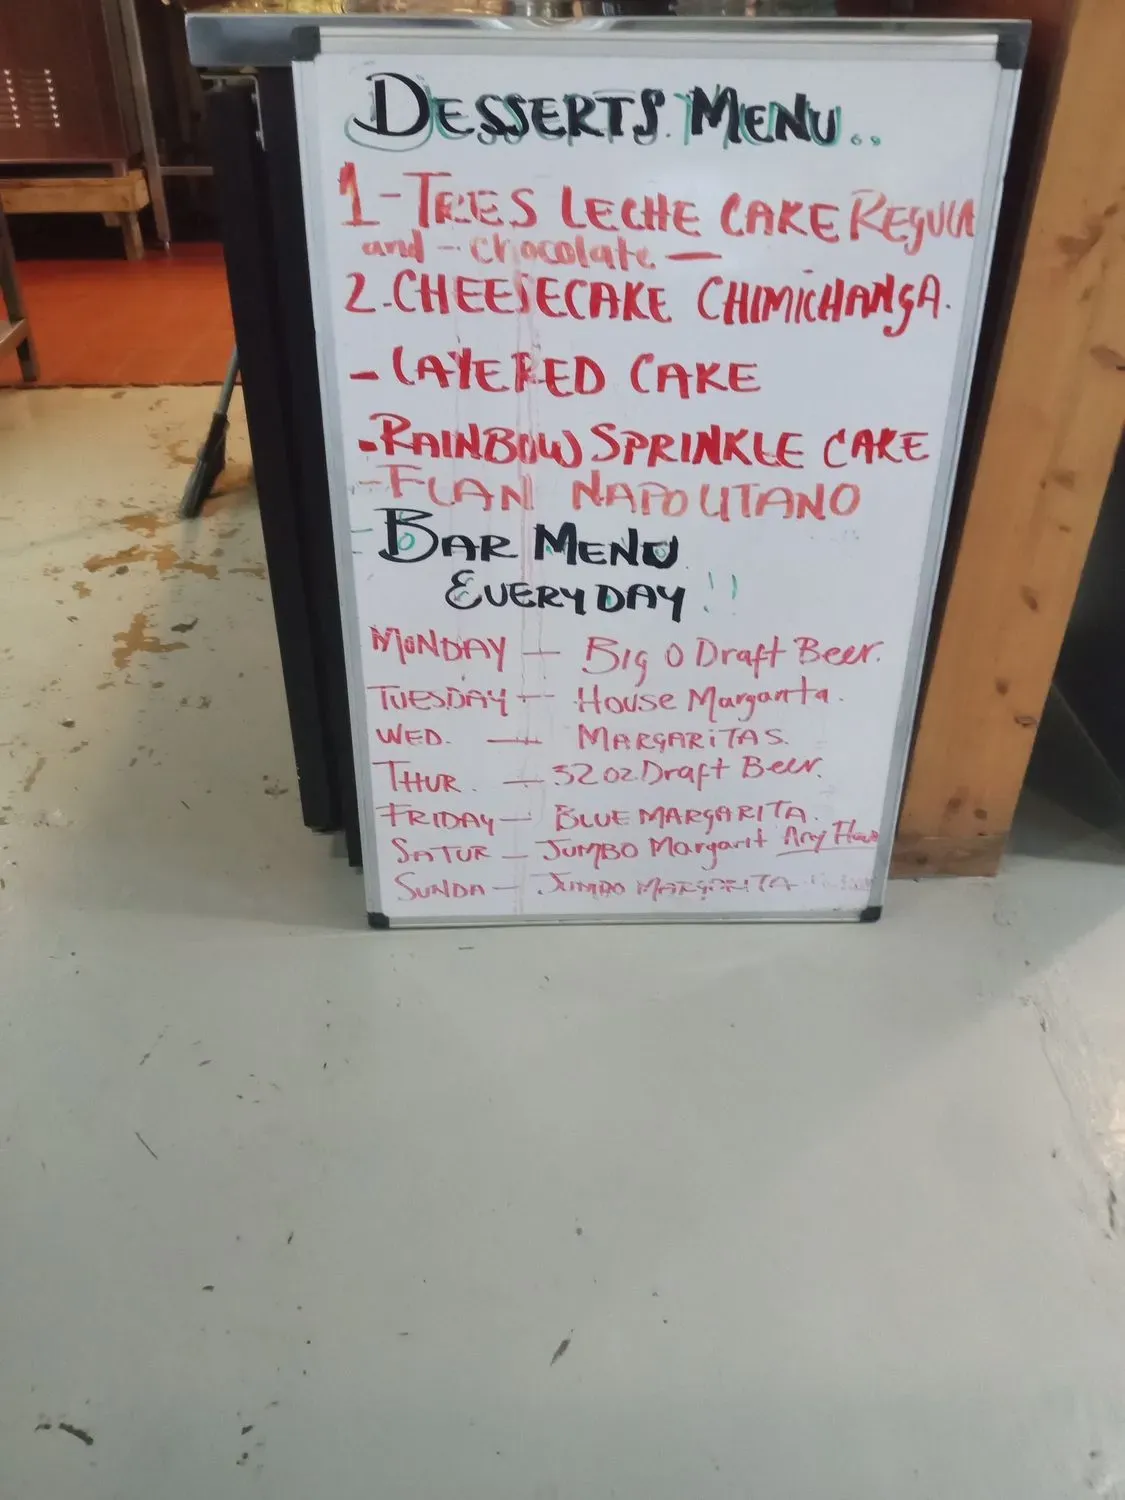 DESSERTS MENU..
1-TRES LECHE CAKE REGULA
and - chocolate —
2.CHEESECAKE CHIMICHANGA.
- LAYERED CAKE
-RAINBOW SPRINKLE CAKE
-FLAN NAPOLITANO
BAR MENU
EVERYDAY !!
MONDAY — Big O Draft Beer.
TUESDAY — House Margarita.
WED. — MARGARITAS.
THUR. — 32 oz Draft Beer.
FRIDAY — BLUE MARGARITA.
SATUR — JUMBO Margarit Any Flavo
SUNDA — JUMBO MARGARITA